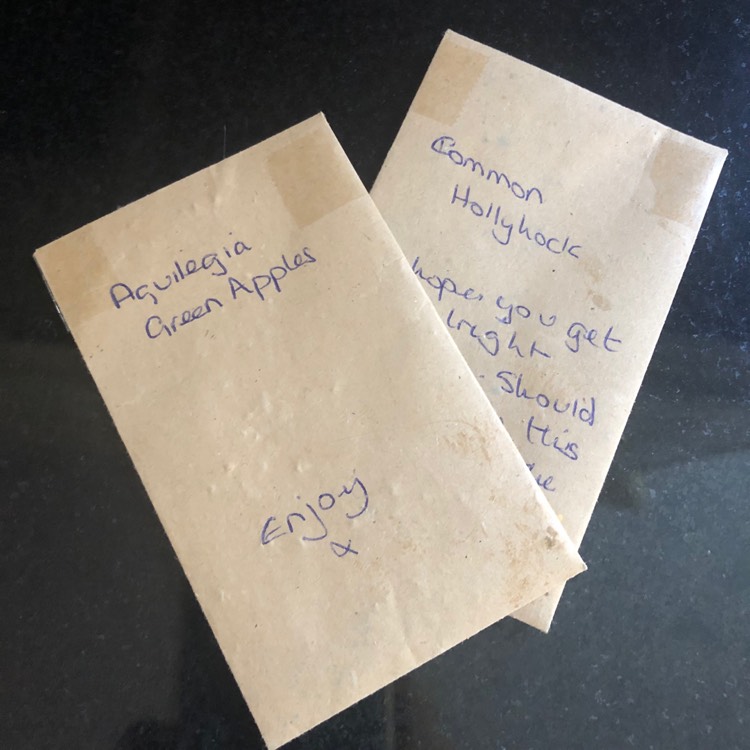 Aquilegia
Green Apples
Enjoy
x
Common
Hollyhock
hope you get
should
this